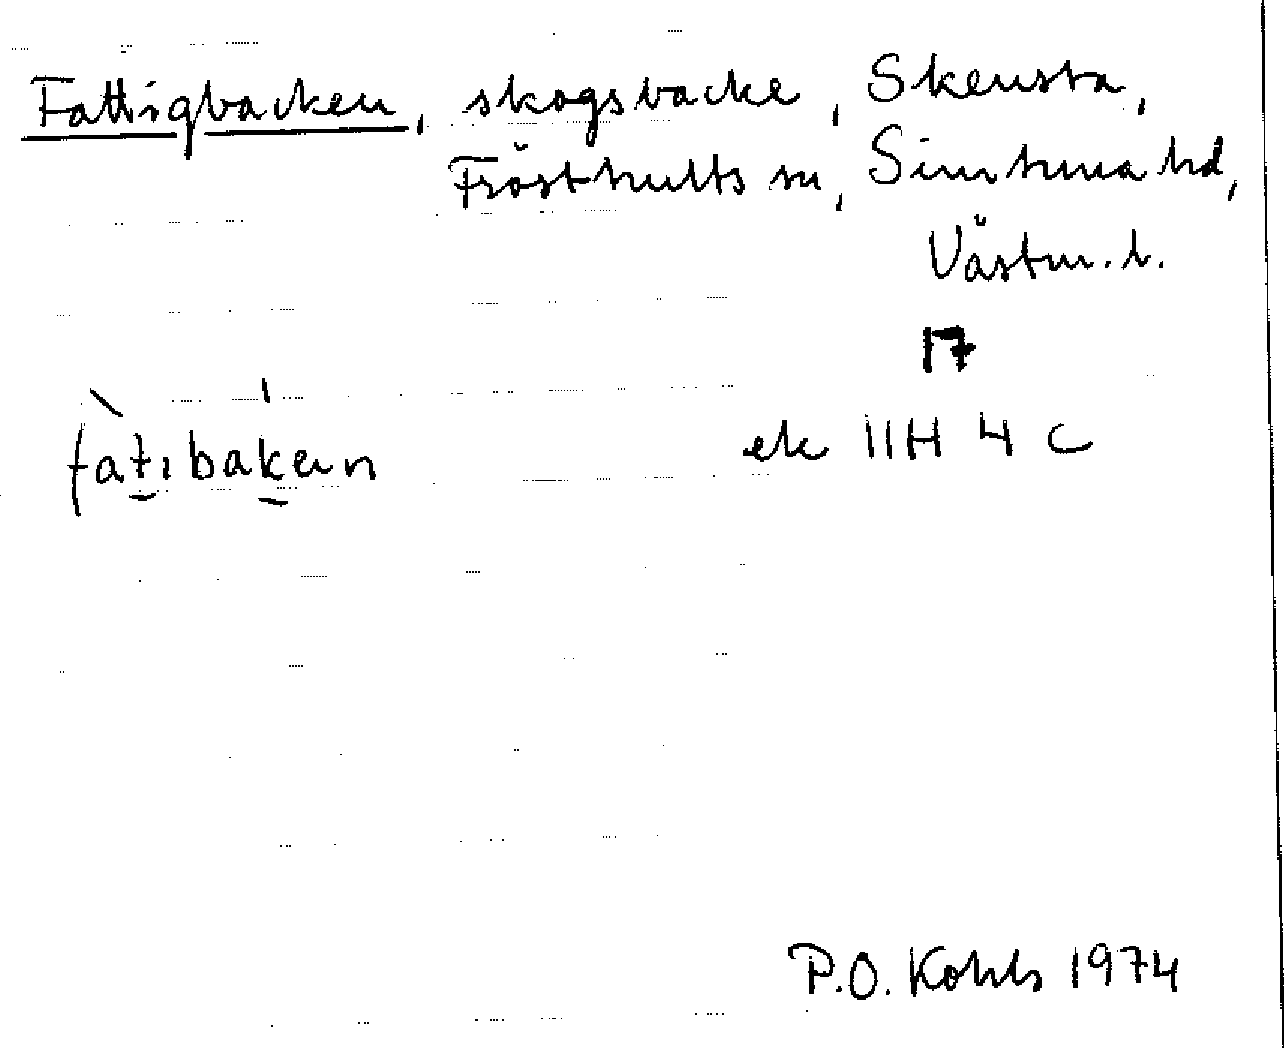 Fattigbacken, skogsbacke, Skensta,
Frösthults sn, Simtuna hd,
Västm. l.
17
fàt̠ıbak̠ən ek 11H 4 c
P.O. Kohls 1974